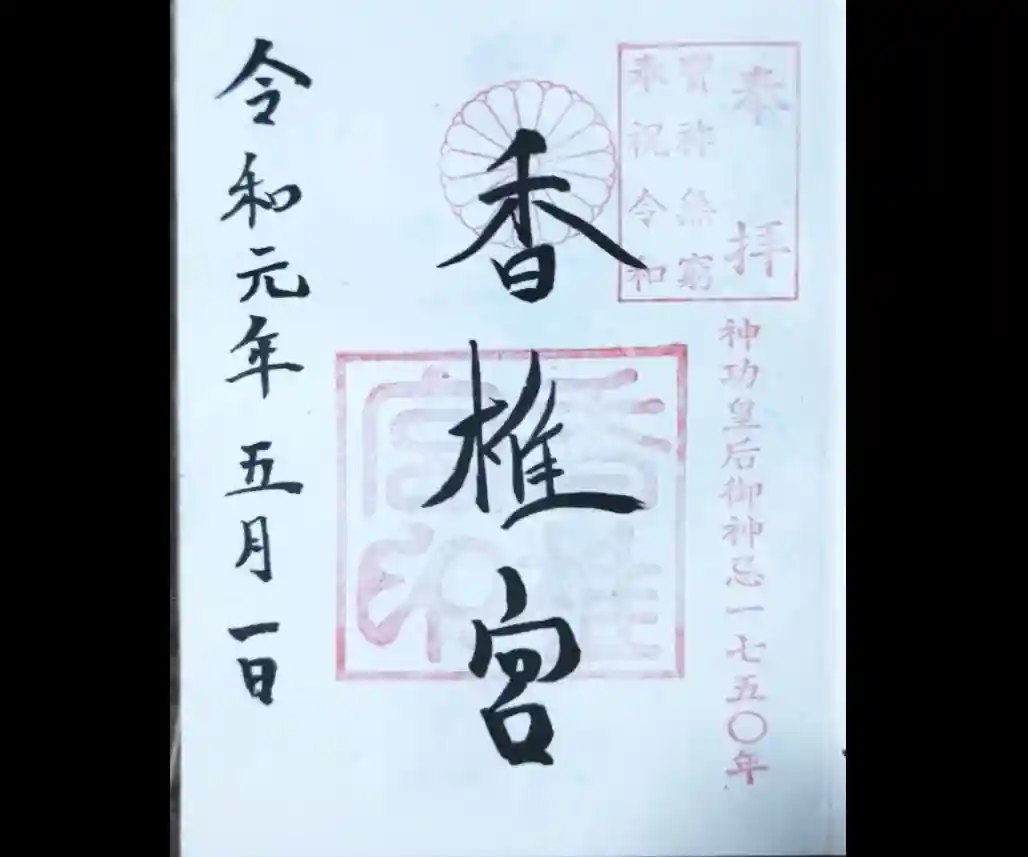 奉拝
寳祚無窮
奉祝令和
神功皇后御神忌一七五〇年
香椎宮
香椎
宮印
令和元年 五月一日